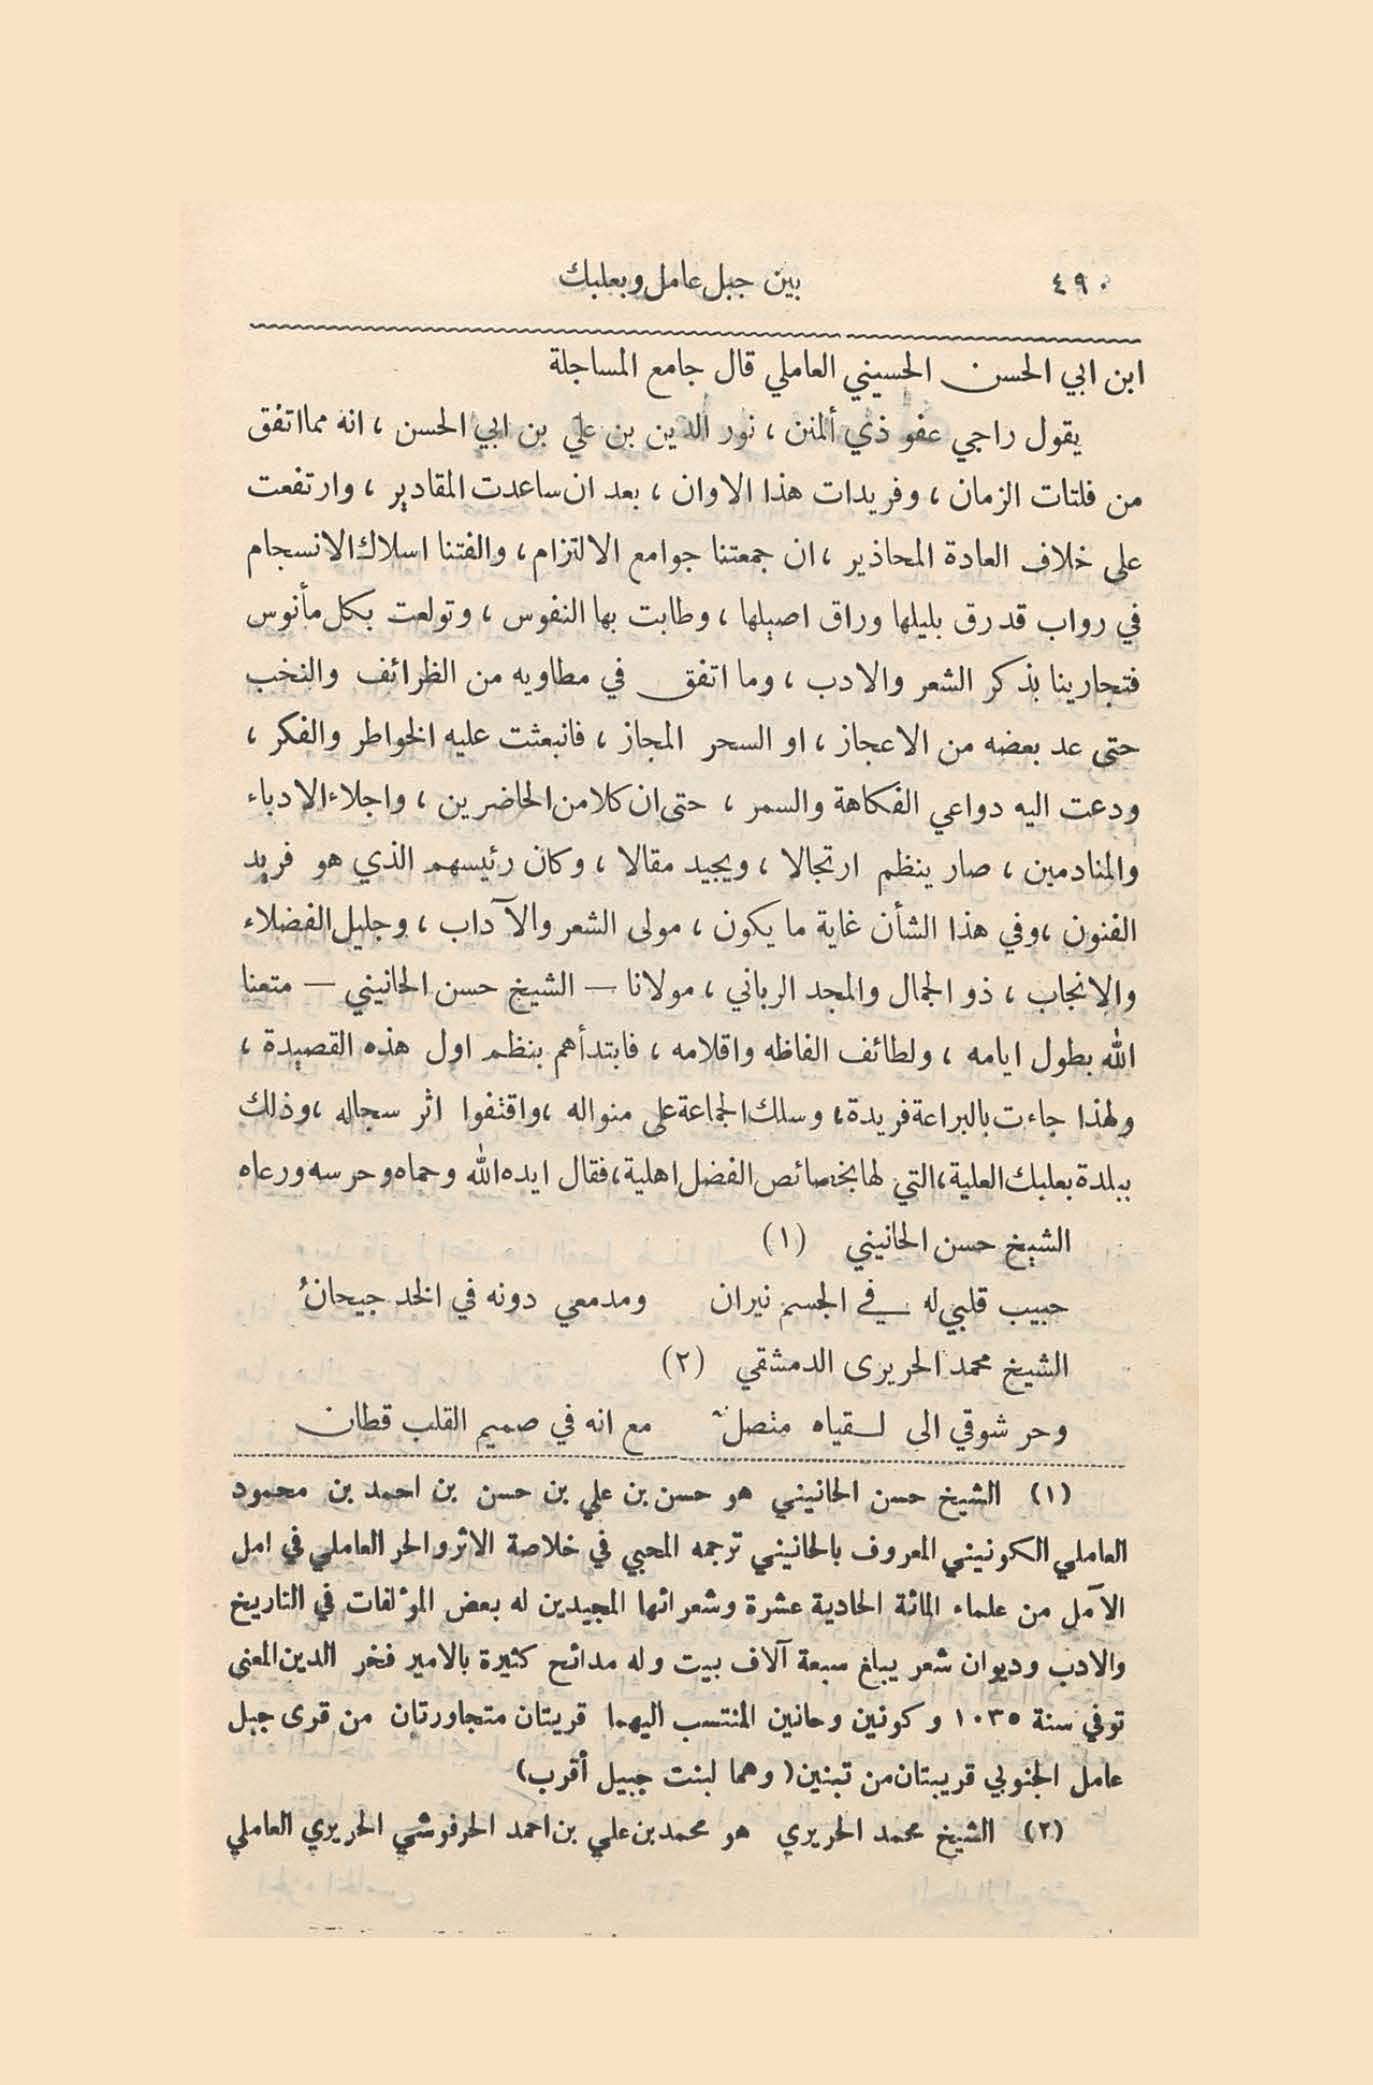 ٤٩٠ بين جبل عامل وبعلبك
ابن ابي الحسن الحسيني العاملي قال جامع المساجلة
يقول راجي عفو ذي ألمنن ، نور الدين بن علي بن ابي الحسن ، انه مما اتفق
من فلتات الزمان ، وفريدات هذا الاوان ، بعد ان ساعدت المقادير ، وارتفعت
على خلاف العادة المحاذير ، ان جمعتنا جوامع الالتزام ، والفتنا اسلاك الانسجام
في رواب قد رق بليلها وراق اصيلها ، وطابت بها النفوس ، وتولعت بكل مأنوس
فتجارينا بذكر الشعر والادب ، وما اتفق في مطاويه من الظرائف والنخب
حتى عد بعضه من الاعجاز ، او السحر المجاز ، فانبعثت عليه الخواطر والفكر ،
ودعت اليه دواعي الفكاهة والسمر ، حتى ان كلا من الحاضرين ، واجلاء الادباء
والمنادمين ، صار ينظم ارتجالا ، ويجيد مقالا ، وكان رئيسهم الذي هو فريد
الفنون ، وفي هذا الشأن غاية ما يكون ، مولى الشعر والآداب ، وجليل الفضلاء
والانجاب ، ذو الجمال والمجد الرباني ، مولانا — الشيخ حسن الحانيني — متعنا
الله بطول ايامه ، ولطائف الفاظه واقلامه ، فابتدأهم بنظم اول هذه القصيدة ،
ولهذا جاءت بالبراعة فريدة ، وسلك الجماعة على منواله ، واقتفوا اثر سجاله ، وذلك
ببلدة بعلبك العلية ، التي لها بخصائص الفضل اهلية ، فقال ايده الله وحماه وحرسه ورعاه
الشيخ حسن الحانيني (١)
حبيب قلبي له في الجسم نيران ومدمعي دونه في الخد جيحانُ
الشيخ محمد الحريرى الدمشقي (٢)
وحر شوقي الى لقياه متصل مع انه في صميم القلب قطان
(١) الشيخ حسن الحانيني هو حسن بن علي بن حسن بن احمد بن محمود
العاملي الكونيني المعروف بالحانيني ترجمه المحبي في خلاصة الاثر والحر العاملي في امل
الآمل من علماء المائة الحادية عشرة وشعرائها المجيدين له بعض المؤلفات في التاريخ
والادب وديوان شعر يبلغ سبعة آلاف بيت وله مدائح كثيرة بالامير فخر الدين المعنى
توفي سنة ١٠٣٥ وكونين وحانين المنتسب اليهما قريتان متجاورتان من قرى جبل
عامل الجنوبي قريبتان من تبنين (وهما لبنت جبيل أقرب)
(٢) الشيخ محمد الحريري هو محمد بن علي بن احمد الحرفوشي الحريري العاملي